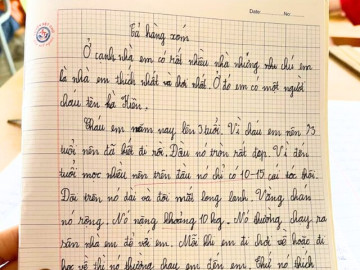 Date: No:
Tả hàng xóm
Ở cạnh nhà em có rất nhiều nhà nhưng nhà chú em
là nhà em thích nhất và chơi nhất. Ở đó em có một người
cháu tên là Hiền.
Cháu em năm nay lên 3 tuổi. Vì cháu em nên 3
tuổi nên đã biết đi rồi. Đầu nó tròn rất đẹp. Vì đến
tuổi mọc nhiều nên trên đầu nó chỉ có 10-15 cái tóc thôi.
Đôi trên nó dài và đôi mắt long lanh. Vầng chán
nó rộng. Nó nặng khoảng 10 kg. Nó thường chạy ra
sân nhà em để với em. Mỗi khi em đi chơi về hoặc đi
học về thì nó thường chạy em đến em. Thứ nó thích